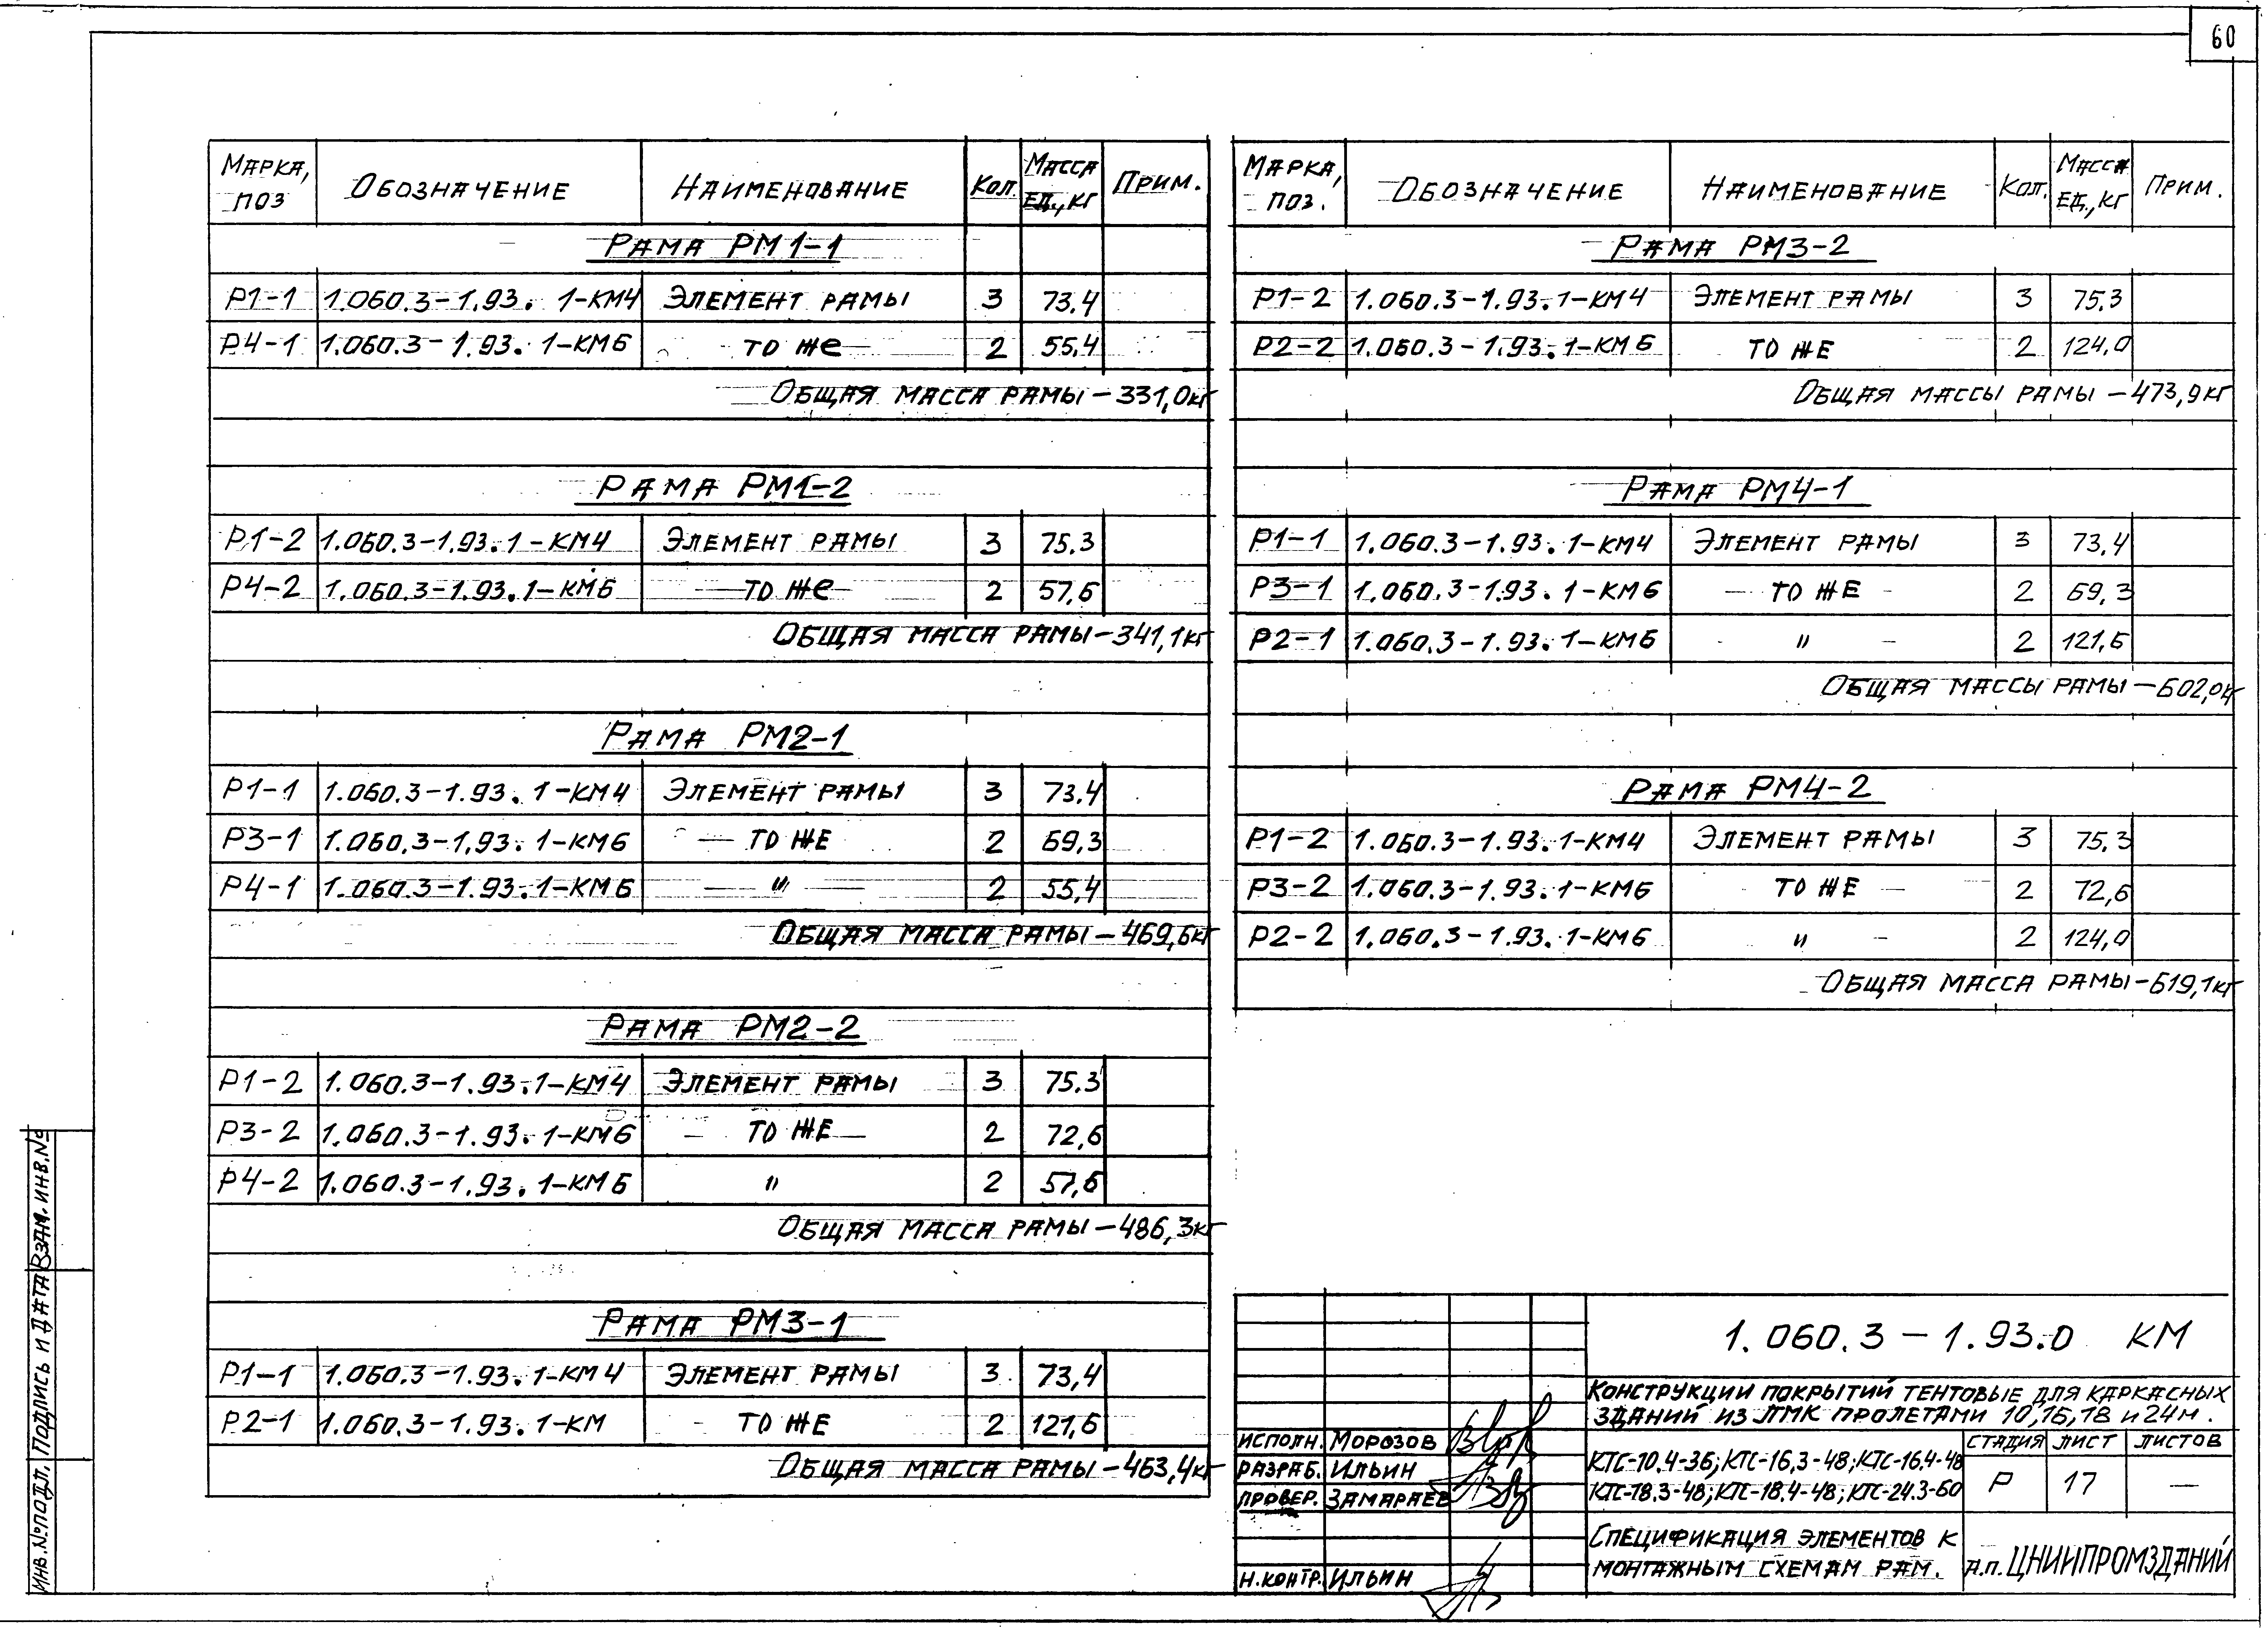 60
МАРКА, ПОЗ ОБОЗНАЧЕНИЕ НАИМЕНОВАНИЕ КОЛ. МАССА ЕД., КГ ПРИМ.
РАМА РМ1-1
Р1-1 1.060.3-1.93. 1-КМ4 ЭЛЕМЕНТ РАМЫ 3 73,4
Р4-1 1.060.3-1.93. 1-КМ6 ТО ЖЕ 2 55,4
ОБЩАЯ МАССА РАМЫ-331,0кг
РАМА РМ1-2
Р1-2 1.060.3-1.93.1-КМ4 ЭЛЕМЕНТ РАМЫ 3 75.3
Р4-2 1.060.3-1.93.1-КМ6 ТО ЖЕ 2 57,6
ОБЩАЯ МАССА РАМЫ-341,1кг
РАМА РМ2-1
Р1-1 1.060.3-1.93. 1-КМ4 ЭЛЕМЕНТ РАМЫ 3 73.4
Р3-1 1.060.3-1.93. 1-КМ6 ТО ЖЕ 2 69,3
Р4-1 1.060.3-1.93.1-КМ6 " 2 55,4
ОБЩАЯ МАССА РАМЫ-469,6кг
РАМА РМ2-2
Р1-2 1.060.3-1.93.1-КМ4 ЭЛЕМЕНТ РАМЫ 3 75.3
Р3-2 1.060.3-1.93. 1-КМ6 ТО ЖЕ 2 72,6
Р4-2 1.060.3-1.93. 1-КМ6 " 2 57,6
ОБЩАЯ МАССА РАМЫ-486,3кг
РАМА РМ3-1
Р1-1 1.060.3-1.93.1-КМ4 ЭЛЕМЕНТ РАМЫ 3 73,4
Р2-1 1.060.3-1.93.1-КМ ТО ЖЕ 2 121,6
ОБЩАЯ МАССА РАМЫ-463,4кг
МАРКА, ПОЗ. ОБОЗНАЧЕНИЕ НАИМЕНОВАНИЕ КОЛ. МАССА ЕД., КГ ПРИМ.
РАМА РМ3-2
Р1-2 1.060.3-1.93.1-КМ4 ЭЛЕМЕНТ РАМЫ 3 75.3
Р2-2 1.060.3-1.93.1-КМ6 ТО ЖЕ 2 124,0
ОБЩАЯ МАССЫ РАМЫ-473,9кг
РАМА РМ4-1
Р1-1 1.060.3-1.93. 1-КМ4 ЭЛЕМЕНТ РАМЫ 3 73,4
Р3-1 1.060.3-1.93. 1-КМ6 ТО ЖЕ 2 69,3
Р2-1 1.060.3-1.93. 1-КМ6 " 2 121,6
ОБЩАЯ МАССЫ РАМЫ-602,0кг
РАМА РМ4-2
Р1-2 1.060.3-1.93.1-КМ4 ЭЛЕМЕНТ РАМЫ 3 75,3
Р3-2 1.060.3-1.93. 1-КМ6 ТО ЖЕ 2 72,6
Р2-2 1.060.3-1.93. 1-КМ6 " 2 124,0
ОБЩАЯ МАССА РАМЫ-619,1кг
1.060.3-1.93.0 КМ
КОНСТРУКЦИИ ПОКРЫТИЙ ТЕНТОВЫЕ ДЛЯ КАРКАСНЫХ
ЗДАНИЙ ИЗ ЛМК ПРОЛЕТАМИ 10,16,18 и 24м.
ИСПОЛН. МОРОЗОВ
РАЗРАБ. ИЛЬИН
ПРОВЕР. ЗАМАРАЕВ
Н.КОНТР. ИЛЬИН
КТС-10.4-36; КТС-16.3-48; КТС-16.4-48
КТС-18.3-48; КТС-18.4-48; КТС-24.3-60
СТАДИЯ ЛИСТ ЛИСТОВ
Р 17 —
СПЕЦИФИКАЦИЯ ЭЛЕМЕНТОВ К
МОНТАЖНЫМ СХЕМАМ РАМ.
А.П. ЦНИИПРОМЗДАНИЙ
ИНВ.№ПОДЛ. ПОДПИСЬ И ДАТА ВЗАМ.ИНВ.№